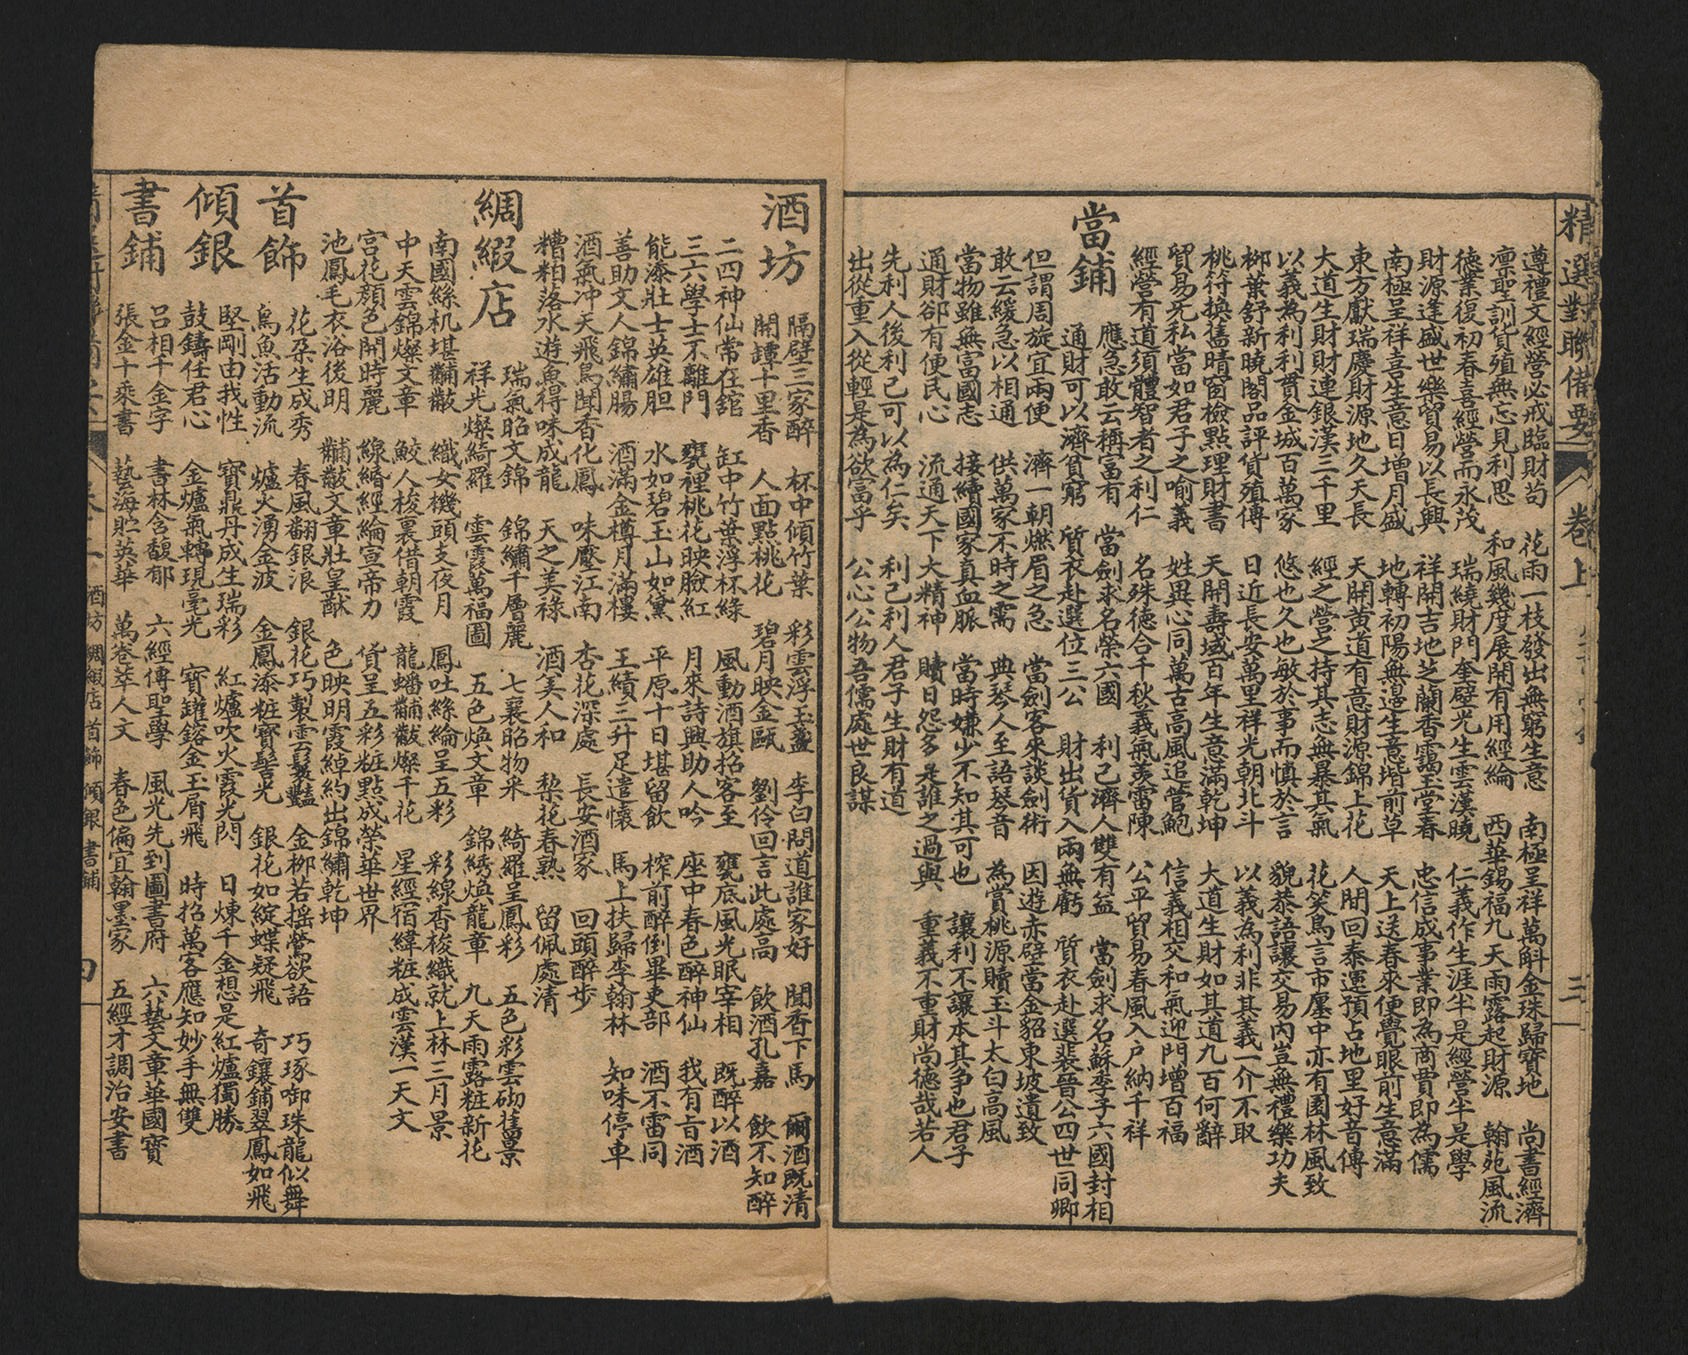 精選對聯備要 卷上 三
遵禮文經營必戒臨財苟 花雨一枝發出無窮生意 南極呈祥萬斛金珠歸寶地 尚書經濟
凛聖訓貨殖無忘見利思 和風幾度展開有用經綸 西華錫福九天雨露起財源 翰苑風流
德業復初春喜經營而永茂 瑞繞財門奎壁光生雲漢曉 仁義作生涯半是經營半是學
財源逢盛世樂貿易以長興 祥開吉地芝蘭香靄玉堂春 忠信成事業即為商賈即為儒
南極呈祥喜生意日增月盛 地轉初陽無邊生意堦前草 天上送春來便覺眼前生意滿
東方獻瑞慶財源地久天長 天開黄道有意財源錦上花 人間回泰運預占地里好音傳
大道生財財連銀漢三千里 經之營之持其志無暴其氣 花笑鳥言市廛中亦有園林風致
以義為利利貫金城百萬家 悠也久也敏於事而慎於言 貌恭語讓交易内豈無禮樂功夫
柳葉舒新曉閣品評貨殖傳 日近長安萬里祥光朝北斗 以義為利非其義一介不取
桃符換舊晴窗檢點理財書 天開壽域百年生意滿乾坤 大道生財如其道九百何辭
貿易无私當如君子之喻義 姓異心同萬古高風追管鮑 信義相交和氣迎門增百福
經營有道須體智者之利仁 名殊德合千秋義氣羨雷陳 公平貿易春風入户納千祥
當鋪
應急敢云稱富有 當劍求名榮六國 利己濟人雙有益 當劍求名蘇季子六國封相
通財可以濟貧窮 質衣赴選位三公 財出貨入兩無虧 質衣赴選裴晉公四世同卿
但謂周旋宜兩便 濟一朝燃眉之急 當劍客來談劍術 因遊赤壁當金貂東坡遺致
敢云緩急以相通 供萬家不時之需 典琴人至語琴音 為賞桃源贖玉斗太白高風
當物雖無富國志 接續國家真血脈 當時嫌少不知其可也 讓利不讓本其争也君子
通財卻有便民心 流通天下大精神 贖日怨多是誰之過與 重義不重財尚德哉若人
先利人後利己可以為仁矣 利己利人君子生財有道
出從重入從輕是為欲富乎 公心公物吾儒處世良謀
酒坊
隔壁三家醉 杯中傾竹葉 彩雲浮玉盞 李白問道誰家好 聞香下馬 爾酒既清
開罈十里香 人面點桃花 碧月映金甌 劉伶回言此處高 飲酒孔嘉 飲不知醉
二四神仙常在舘 缸中竹葉浮杯綠 風動酒旗招客至 甕底風光眠宰相 既醉以酒
三六學士不離門 甕裡桃花映臉紅 月來詩興助人吟 座中春色醉神仙 我有旨酒
能添壯士英雄胆 水如碧玉山如黛 平原十日堪留飲 榨前醉倒畢吏部 酒不雷同
善助文人錦繡腸 酒滿金樽月滿樓 王績三升足遣懷 馬上扶歸李翰林 知味停車
酒氣冲天飛鳥聞香化鳳 味壓江南 杏花深處 長安酒家 回頭醉步
糟粕落水遊魚得味成龍 天之美祿 酒美人和 梨花春熟 留佩處清
綢緞店
瑞氣昭文錦 錦繡千層麗 七襄昭物采 綺羅呈鳳彩 五色彩雲砌舊景
祥光燦綺羅 雲霞萬福圖 五色煥文章 錦綉煥龍章 九天雨露粧新花
南國絲机堪黼黻 織女機頭支夜月 鳳吐絲綸呈五彩 彩線香梭織就上林三月景
中天雲錦燦文章 鮫人梭裏借朝霞 龍蟠黼黻燦千花 星經宿緯粧成雲漢一天文
宮花顏色開時麗 線緡經綸宣帝力 貨呈五彩粧點成榮華世界
池鳳毛衣浴後明 黼黻文章壯皇猷 色映明霞綽約出錦繡乾坤
首飾
花朶生成秀 春風翻銀浪 銀花巧製雲鬟豔 金柳若摇鶯欲語 巧琢啣珠龍似舞
鳥魚活動流 爐火湧金波 金鳳添粧寶髻光 銀花如綻蝶疑飛 奇鑲鋪翠鳳如飛
傾銀
堅剛由我性 寶鼎丹成生瑞彩 紅爐吹火霞光閃 日煉千金想是紅爐獨勝
鼓鑄任君心 金爐氣轉現毫光 寶鑵鎔金玉屑飛 時招萬客應知妙手無雙
書鋪
呂相千金字 書林含馥郁 六經傳聖學 風光先到圖書府 六藝文章華國寶
張金十乘書 藝海貯英華 萬卷萃人文 春色偏宜翰墨家 五經才調治安書
酒坊 綢緞店 首飾 傾銀 書鋪